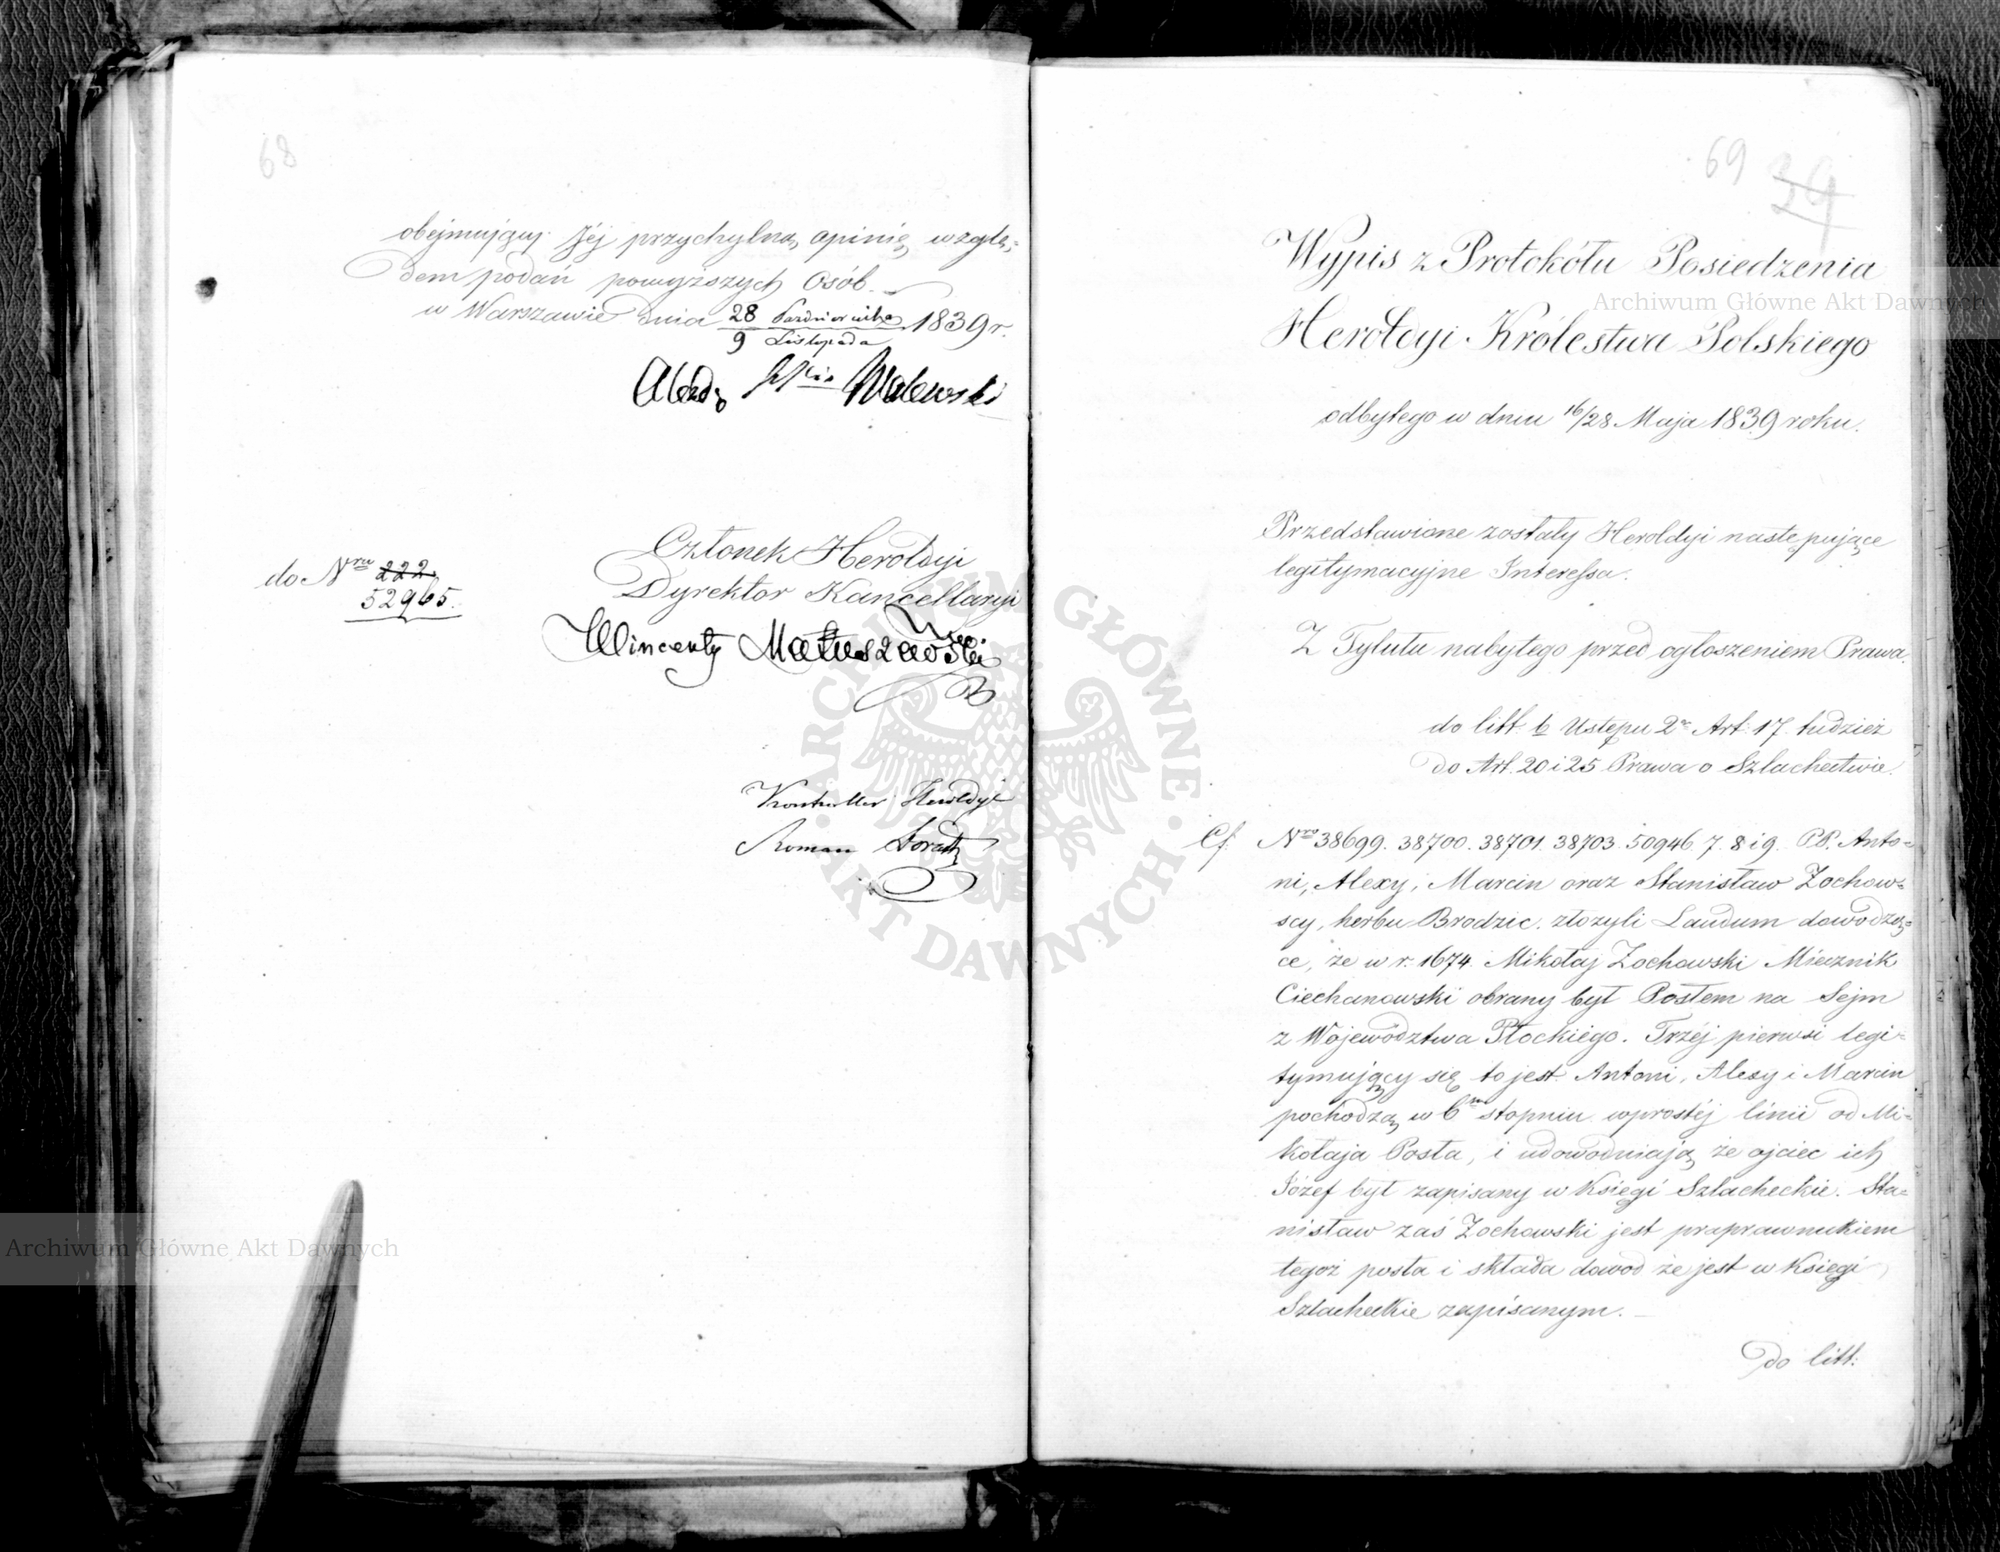 68
obejmujący Jéj przychylną opinię wzglę-
dem podań powyższych Osób.
w Warszawie dnia 28 Października / 9 Listopada 1839 r.
Walewski
Członek Herołdyi
Dyrektor Kancellaryi
do Nru 222
52965.
Wincenty Matuszewski
Kontroller Heroldyi
Roman
69 34
Wypis z Protokółu Posiedzenia
Herołdyi Królestwa Polskiego
odbytego w dniu 16/28 Maja 1839 roku.
Przedstawione zostały Heroldyi następujące
legitymacyjne Interessa.
Z Tytułu nabytego przed ogłoszeniem Prawa.
do litt. b Ustępu 2o Art. 17. tudzież
do Art. 20 i 25 Prawa o Szlachectwie.
Cf. Nro 38699. 38700. 38701. 38703. 50946. 7. 8 i 9. PP. Anto-
ni, Alexy, Marcin oraz Stanisław Zochow-
scy, herbu Brodzic. złożyli Laudum dowodzą-
ce, że w r. 1674. Mikołaj Zochowski Miecznik
Ciechanowski obrany był Posłem na Sejm
z Województwa Płockiego. Trzéj pierwsi legi-
tymujący się to jest Antoni, Alexy i Marcin
pochodzą w 6m stopniu wprostéj linii od Mi-
kołaja Posła, i udowodniają że ojciec ich
Józef był zapisany w Księgi Szlacheckie. Sta-
nisław zaś Zochowski jest praprawnukiem
tegoż posła i składa dowod że jest w Księgi
Szlacheckie zapisanym.
Do litt:
Archiwum Główne Akt Dawnych
Archiwum Główne Akt Dawnych
ARCHIWUM GŁÓWNE · AKT DAWNYCH ·